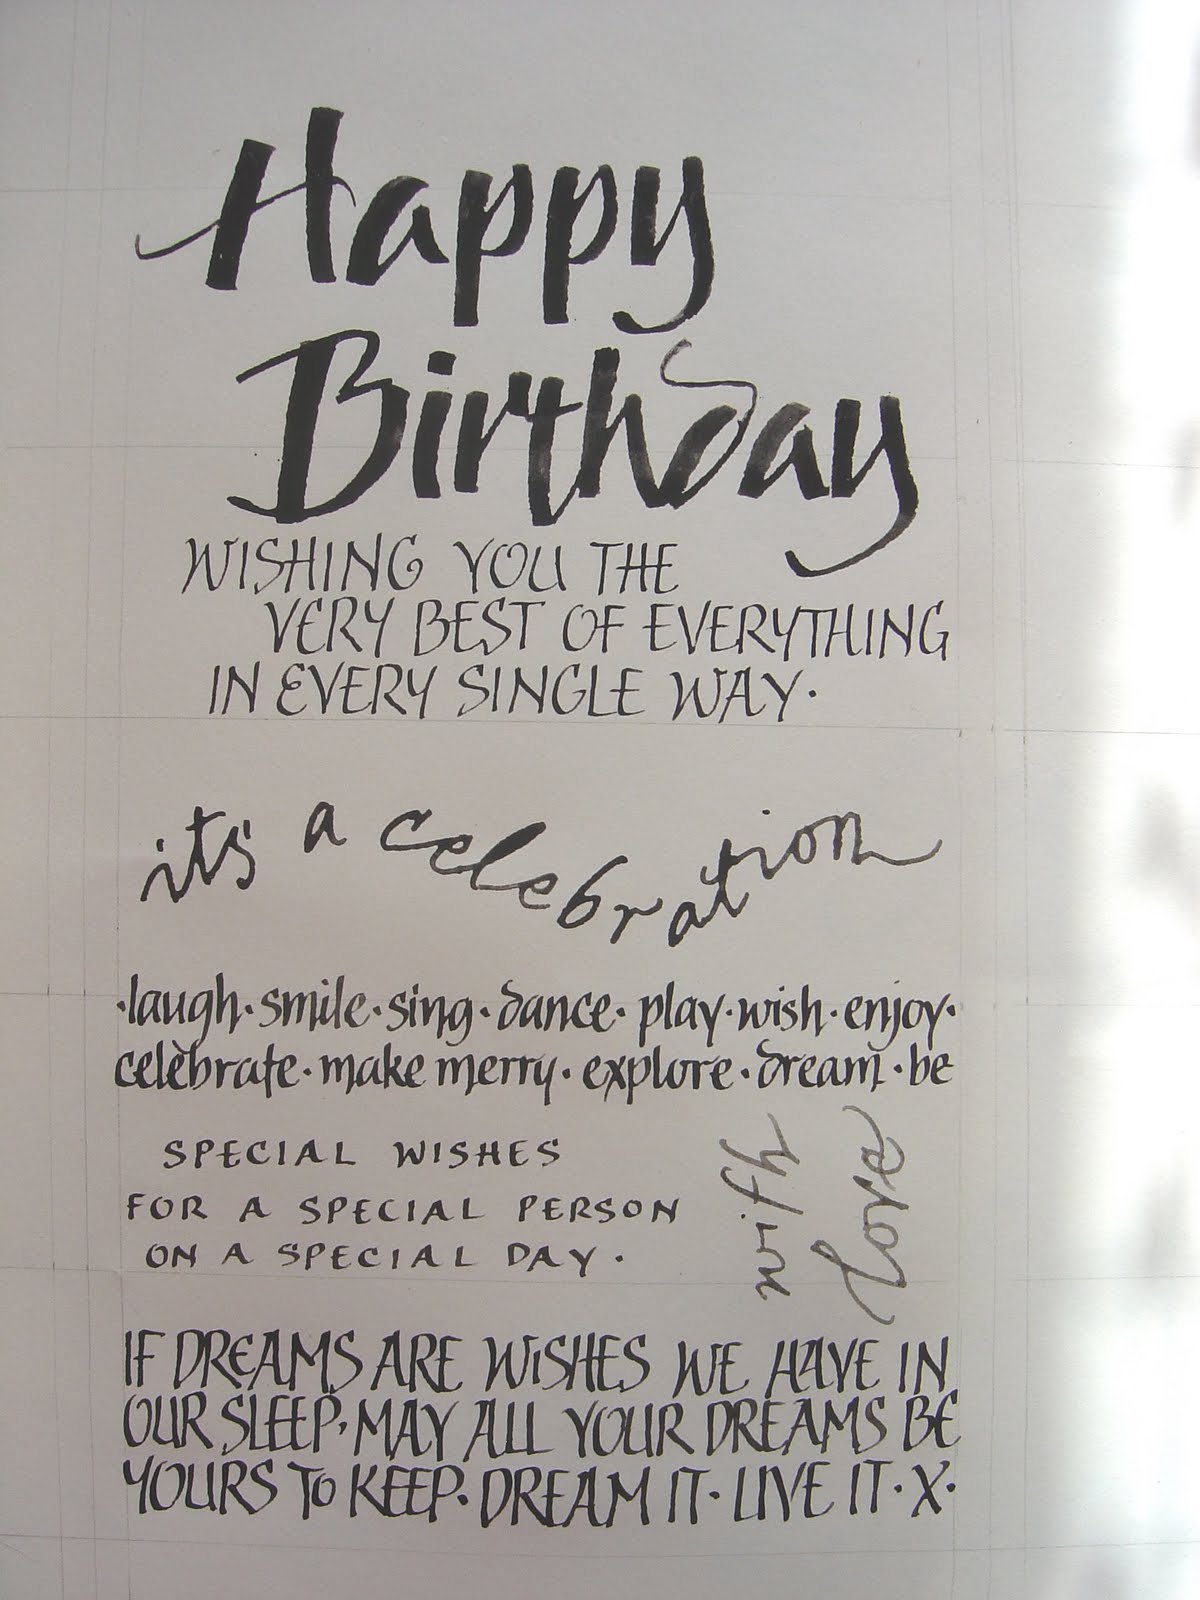 Happy
Birthday
WISHING YOU THE
VERY BEST OF EVERYTHING
IN EVERY SINGLE WAY.
its a celebration
·laugh·smile·sing·dance·play·wish·enjoy·
celebrate·make merry·explore·dream·be
SPECIAL WISHES
FOR A SPECIAL PERSON
ON A SPECIAL DAY.
with
love
IF DREAMS ARE WISHES WE HAVE IN
OUR SLEEP, MAY ALL YOUR DREAMS BE
YOURS TO KEEP·DREAM IT·LIVE IT·X·